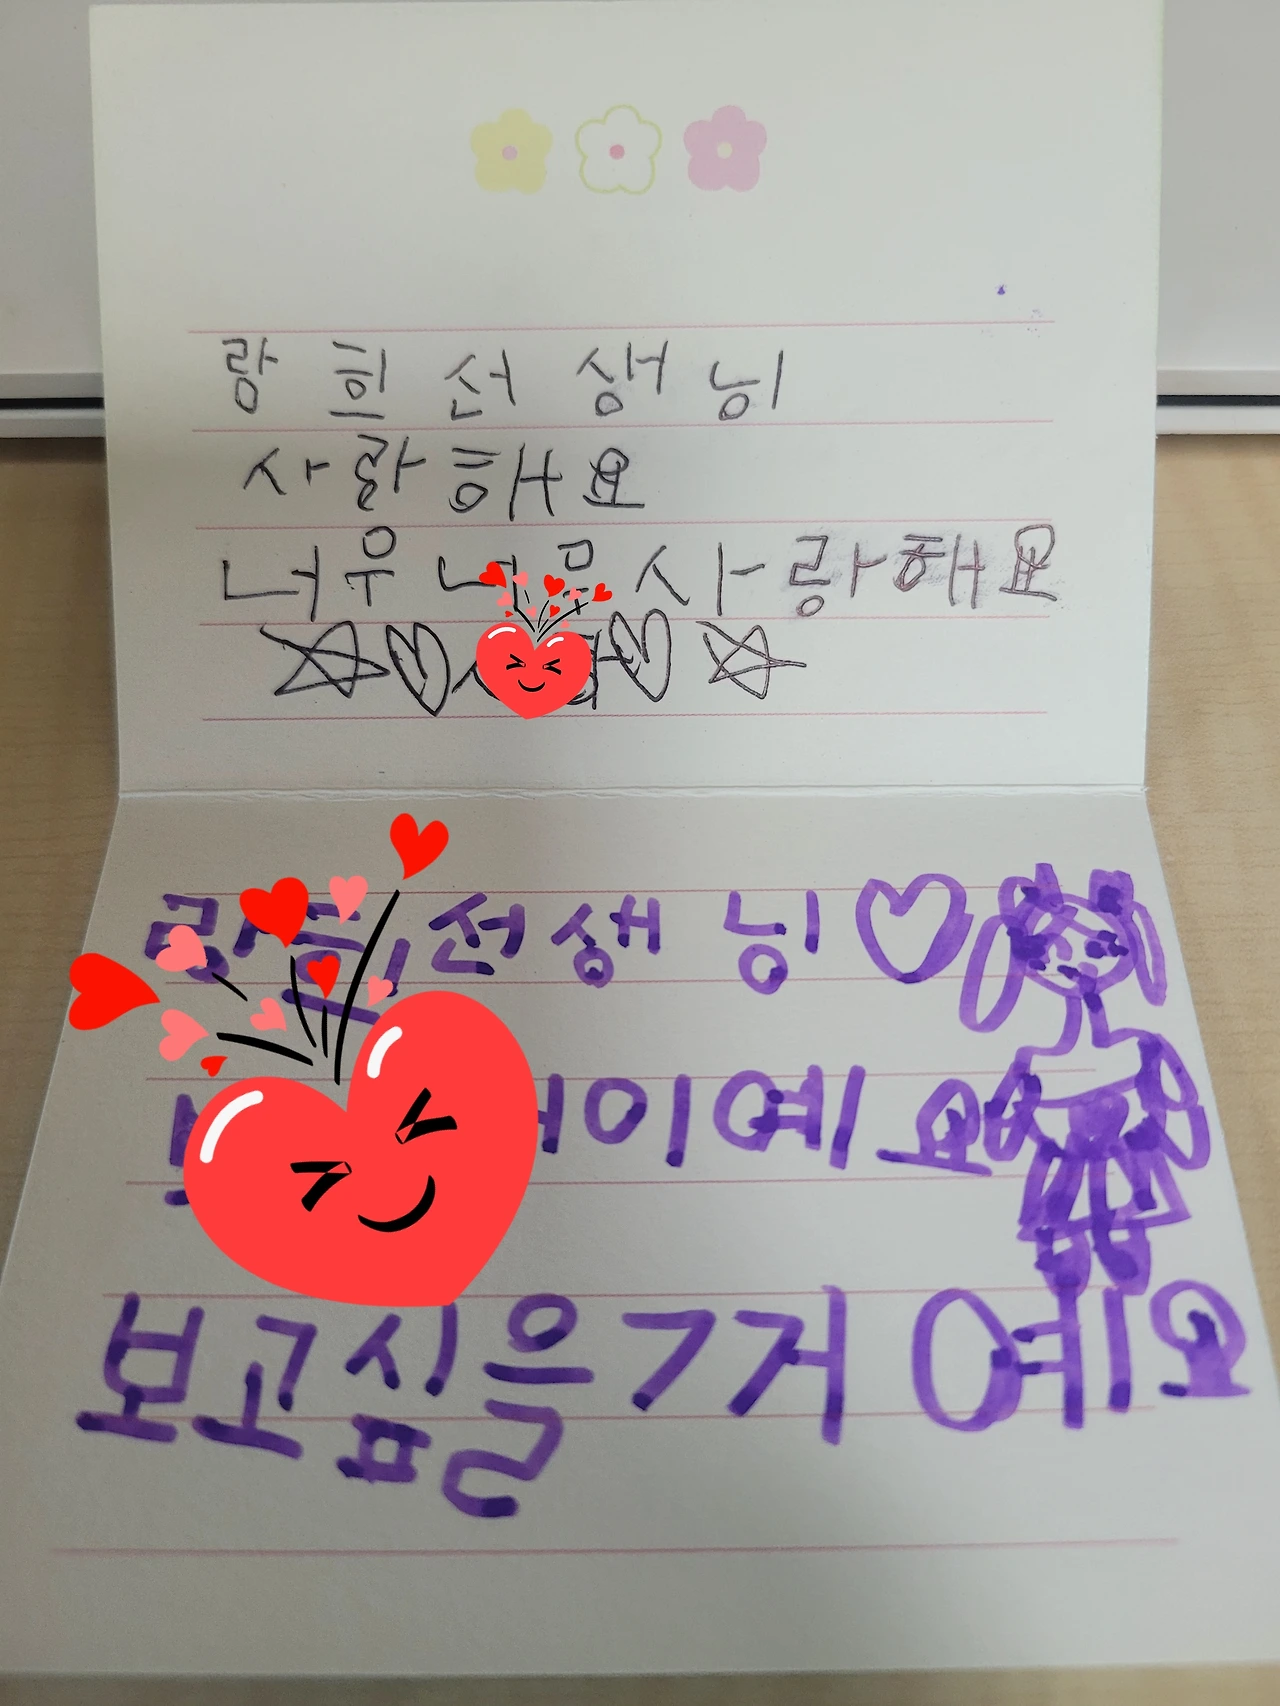 랑희선생님
사랑해요
너무너무사랑해요
랑희선생님
이예요
보고싶을거예요